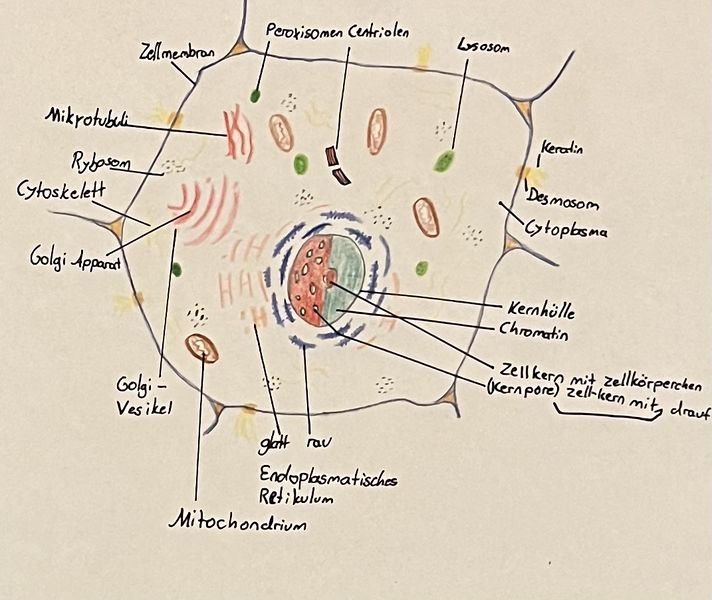 Peroxisomen Centriolen
Lysosom
Zellmembran
Mikrotubuli
Rybosom
Cytoskelett
Golgi Apparat
Keratin
Desmosom
Cytoplasma
Kernhülle
Chromatin
Zellkern mit zellkörperchen
(Kernpore) zell-kern mit drauf
Golgi-
Vesikel
glatt rau
Endoplasmatisches
Retikulum
Mitochondrium